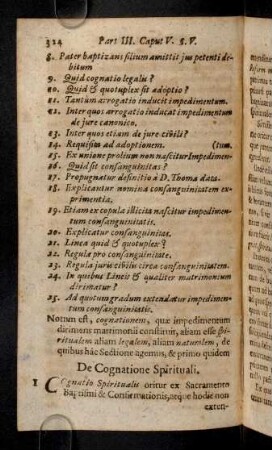 324 Pars III. Caput V. §. V.
8. Pater baptizans filium amittit jus petenti debitum
9. Quid cognatio legalis?
10. Quid & quotuplex sit adoptio?
11. Tantum arrogatio inducit impedimentum.
12. Inter quos arrogatio inducat impedimentum
de jure canonico.
13. Inter quos etiam de jure civili?
14. Requisita ad adoptionem. (tum.
15. Ex unione prolium non nascitur Impedimen-
16. Quid sit consanguinitas?
17. Propugnatur definitio à D. Thoma data.
18. Explicantur nomina consanguinitatem ex-
primentia.
19. Etiam ex copula illicita nascitur impedimen-
tum consanguinitatis.
20. Explicatur consanguinitas.
21. Linea quid & quotuplex?
22. Regula pro consanguinitate.
23. Regula juris civilis circa consanguinitatem.
24. In quibus Lineis & qualiter matrimonium
dirimatur?
25. Ad quotum gradum extendatur impedimen-
tum consanguinitatis.
Notum est, cognationem, quæ impedimentum
dirimens matrimonii constituit, aliam esse spi-
ritualem aliam legalem, aliam naturalem, de
quibus hâc Sectione agemus, & primo quidem
De Cognatione Spirituali.
1 Cognatio Spiritualis oritur ex Sacramento
Baptismi & Confirmationis, neque hodie non
exten-